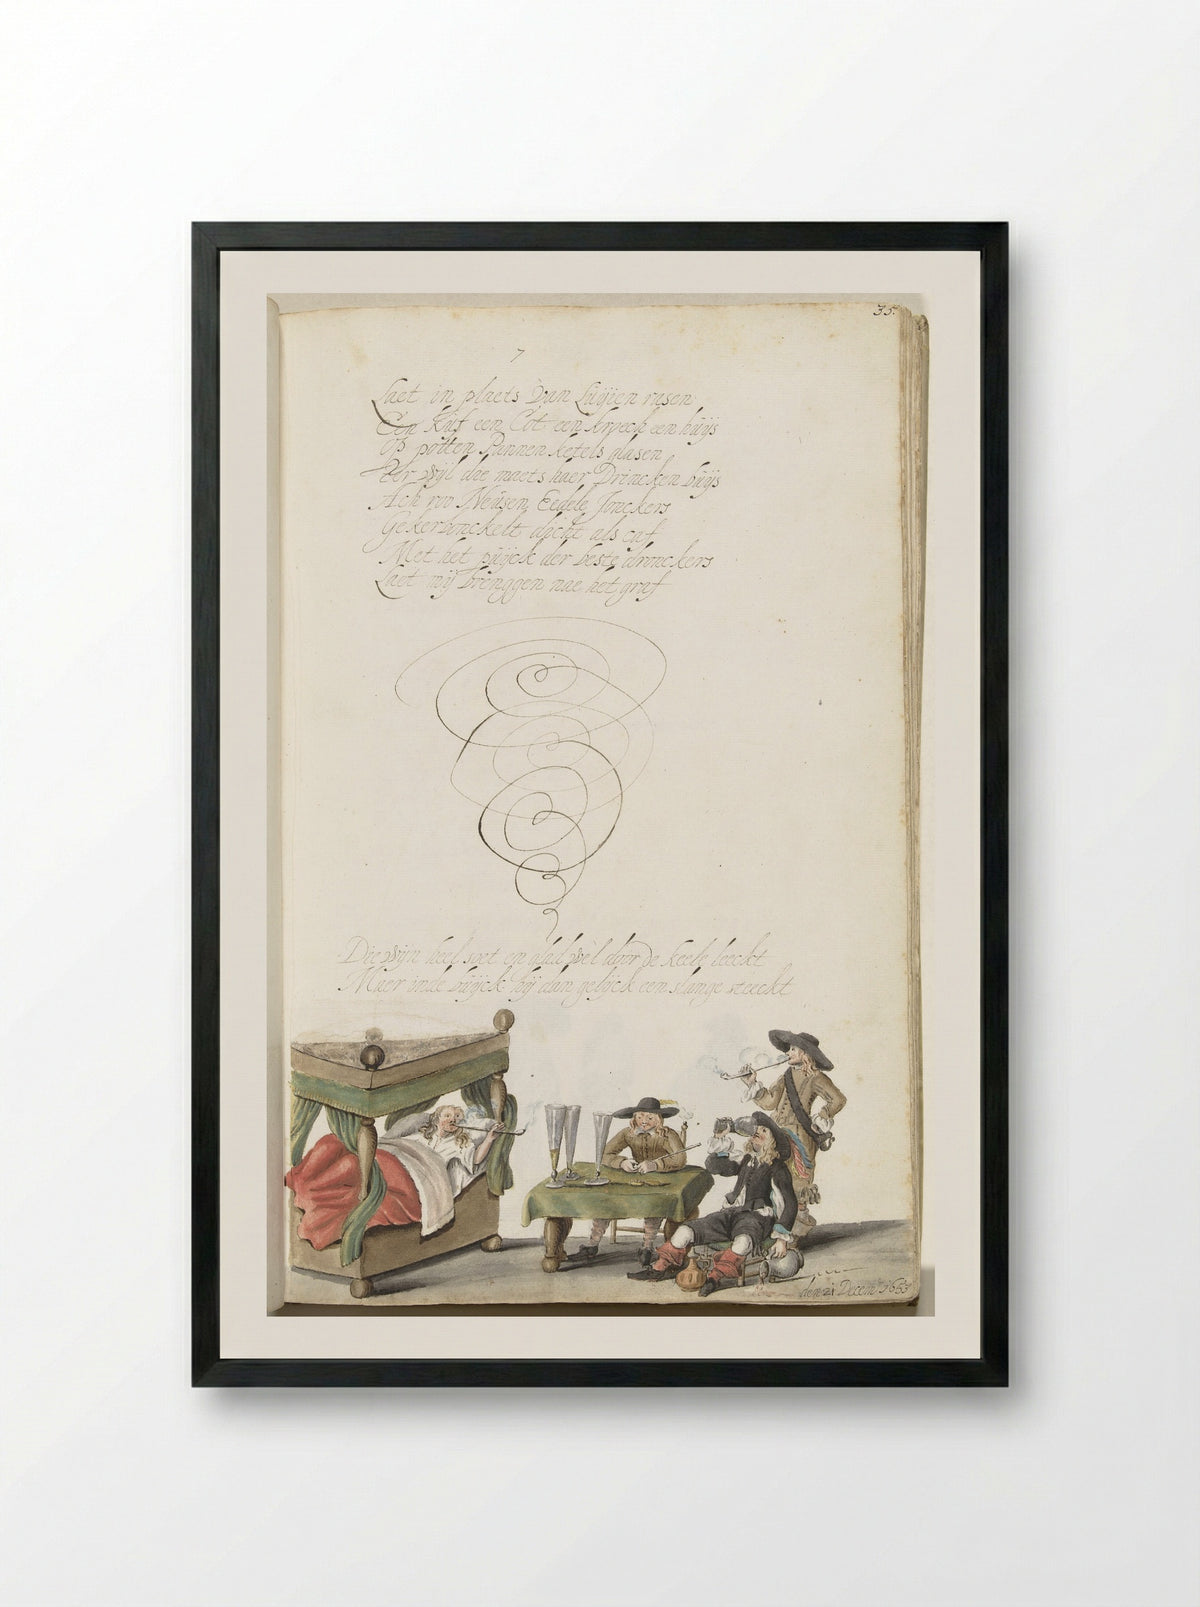 35.
7
Laet in plaets van Luÿien rasen
Een Kuf een Cot een kroech een huÿs
Op potten Pannen ketels glasen
Ter wijl die maets haer Drincken buÿs
Ach roo Neusen Eedele Jonckers
Gekerbonckelt docht als caf
Met het puijck der beste dronckers
Laet mij brenggen nae het graf
Die wijn heel soet en glad wel door de keele leeckt
Maer inde buijck hij dan gelijck een slange steeckt
den 21 Decem 165